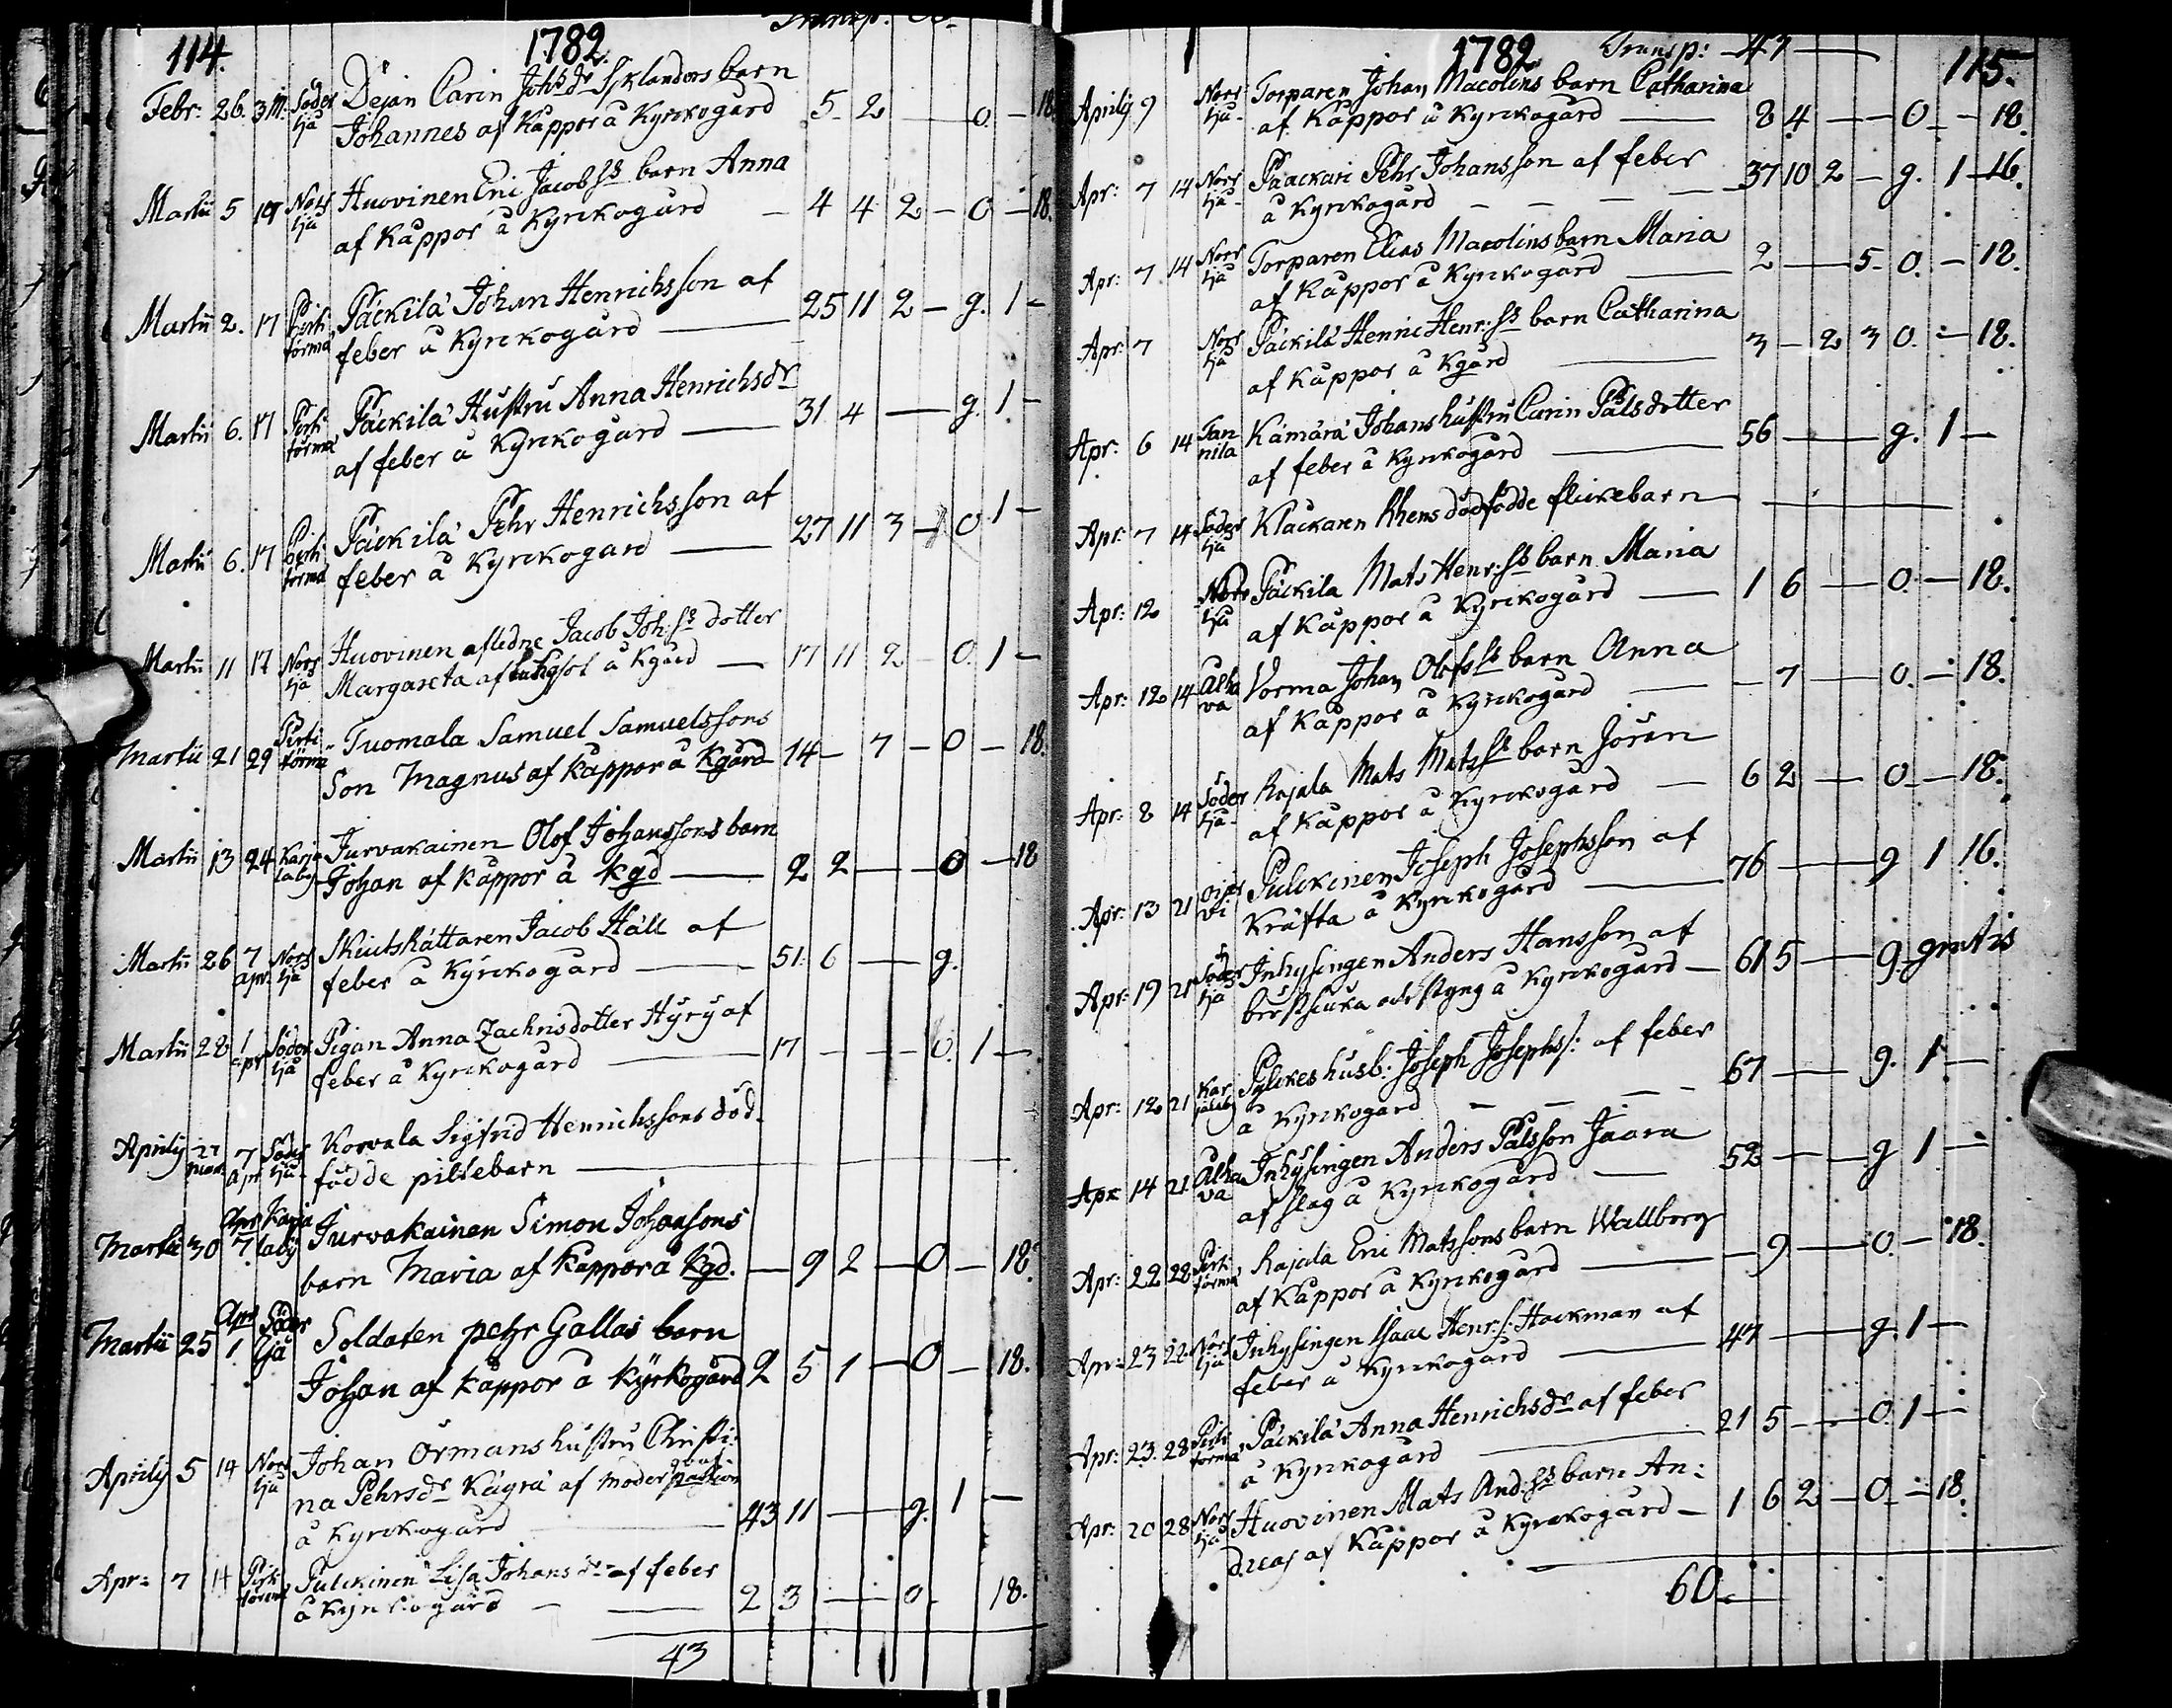 114. 1782. Transp.
Febr: 26. 3 M. Söder
ljá
Dejan Carin Johsdr
Johannes af Kappor à Kyrckogård 5 2 — 0. — 18
Martii 5 17 Norr
ljá
Huovinen Eric Jacobss barn Anna
af Kappor à Kyrckogård — 4 4 2 — 0 — 18.
Martii 2. 17 Pirti
törmä
Päckilä Johan Henrichsson af
feber à Kyrckogård — 25 11 2 — g. 1 —
Martii 6. 17 Pirti
törmä
Päckilä Hustru Anna Henrichsdr
af feber à Kyrckogård — 31 4 — g. 1 —
Martii 6. 17 Pirti
törmä
Päckilä Pehr Henrichsson af
feber à Kyrckogård — 27 11 3 — 0 1 —
Martii 11 17 Norr
ljá
Huovinen afledne Jacob Joh:ss dotter
Margareta af lungsot à Kgård — 17 11 2 — 0. 1 —
Martii 21 29 Pirti
törmä
Tuomala Samuel Samuelssons
Son Magnus af kappor à Kgård 14 — 7 — 0 — 18.
Martii 13 24 Karja
laby
Jurvakainen Olof Johanssons barn
Johan af kappor à kgd — 2 2 — 0 — 18
Martii 26 7
apr. Norr
ljá
Skiutshåttaren Jacob Häll af
feber à Kyrckogård — 51. 6 — g.
Martii 28 1
apr Söder
ljá
Pigan Anna Zachrisdotter Hyry af
feber à Kyrckogård — 17 — 0. 1 —
Aprily 27
mar. 7
Apr Söder
ljá
Korvala Sigfrid Henrichssons död-
födde piltebarn —
Martii 30 Apr
7. Karja
laby
Jurvakainen Simon Johansons
barn Maria af kappor à Kgd. — 9 2 — 0 — 18.
Martii 25 Apr
1 Söder
ljá
Soldaten pehr Gallas barn
Johan af kappor à kyrkogård 2 5 1 — 0 — 18.
Aprily 5 14 Norr
ljá
Johan Örmans hustru Christi:
na Pehrsdr Kägrä af moder passion
à Kyrckogård — 43 11 — g. 1 —
Apr: 7 14 Pirti
törmä
Pulckinen Lisa Johansdr af feber
à Kyrckogård — 2 3 — 0. 18.
43
1782 Transp: 47 — 115.
Aprily 9 Norr
ljá
Torparen Johan Macolins barn Catharina
af Kappor à Kyrckogård — 8 4 — 0 — 18.
Apr: 7 14 Norr
ljá
Paackari Pehr Johansson af feber
à Kyrckogård — 37 10 2 — g. 1 — 16.
Apr: 7 14 Norr
ljá
Torparen Elias Macolins barn Maria
af Kappor à Kyrckogård — 2 — 5 0. — 18.
Apr: 7 Norr
ljá
Päckilä Henric Henr:ss barn Catharina
af Kappor à Kgård — 3 — 2 3 0. — 18.
Apr: 6 14 Tan
nila
Kämärä Johans hustru Carin Pålsdotter
af feber à Kyrckogård — 56 — g. 1 —
Apr: 7 14 Söder
ljá
Klackaren Rhens dödfödde flickebarn —
Apr: 12 Norr
ljá
Päckila Mats Henr:ss barn Maria
af Kappor à Kyrckogård — 1 6 — 0. — 18.
Apr: 12 14 Alha
va
Vorma Johan Olofss barn Anna
af Kappor à Kyrckogård — 7 — 0. — 18.
Apr: 8 14 Söder
ljá
Rajala Mats Matsss barn Jören
af Kappor à Kyrckogård — 6 2 — 0 — 18.
Apr: 13 21 Oijär
vi
Pulckinen Joseph Josephsson af
Kräfta à Kyrckogård — 76 — g 1 16.
Apr: 19 21 Söder
ljá
Inhysingen Anders Hansson af
bröstsiuka och styng à Kyrckogård — 61 5 — g — gratis
Apr: 12 21 Kar
jalaby
Pulckes husb: Joseph Josephs: af feber
à Kyrckogård — 67 — g. 1 —
Apr: 14 21 Alha
va
Inhysingen Anders Pålsson Jaara
af slag à Kyrckogård — 52 — g 1 —
Apr: 22 28 Pirti
törmä
Rajala Eric Matssons barn Wallborg
af Kappor à Kyrckogård — 9 — 0. — 18.
Apr: 23 28 Norr
ljá
Inhysingen Isaac Henr:s: Hackman af
feber à Kyrckogård — 47 — g. 1 —
Apr: 23. 28 Pirti
törmä
Päckilä Anna Henrichsdr af feber
à Kyrckogård — 21 5 — 0. 1 —
Apr: 20 28 Norr
ljá
Huovinen Mats And:ss barn An:
dreas af Kappor à Kyrckogård — 1 6 2 — 0 — 18.
60 —